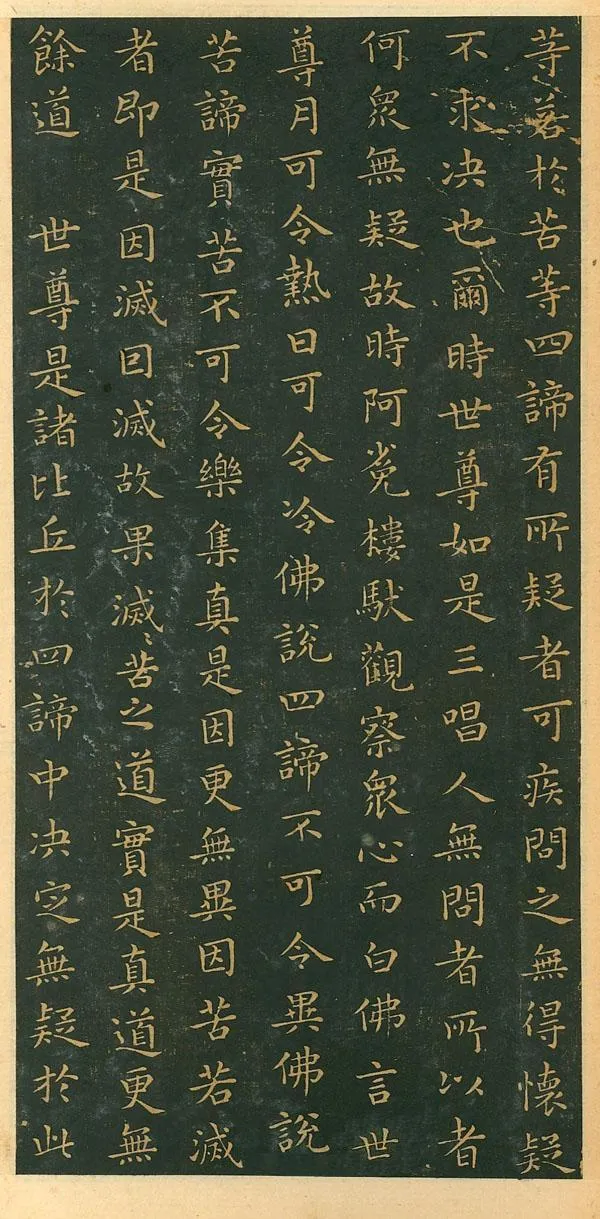 等若於苦等四諦有所疑者可疾問之無得懷疑
不求决也爾時世尊如是三唱人無問者所以者
何衆無疑故時阿㝹樓馱觀察衆心而白佛言世
尊月可令熱日可令冷佛說四諦不可令異佛說
苦諦實苦不可令樂集真是因更無異因苦若滅
者即是因滅因滅故果滅〻苦之道實是真道更無
餘道　世尊是諸比丘於四諦中决定無疑於此